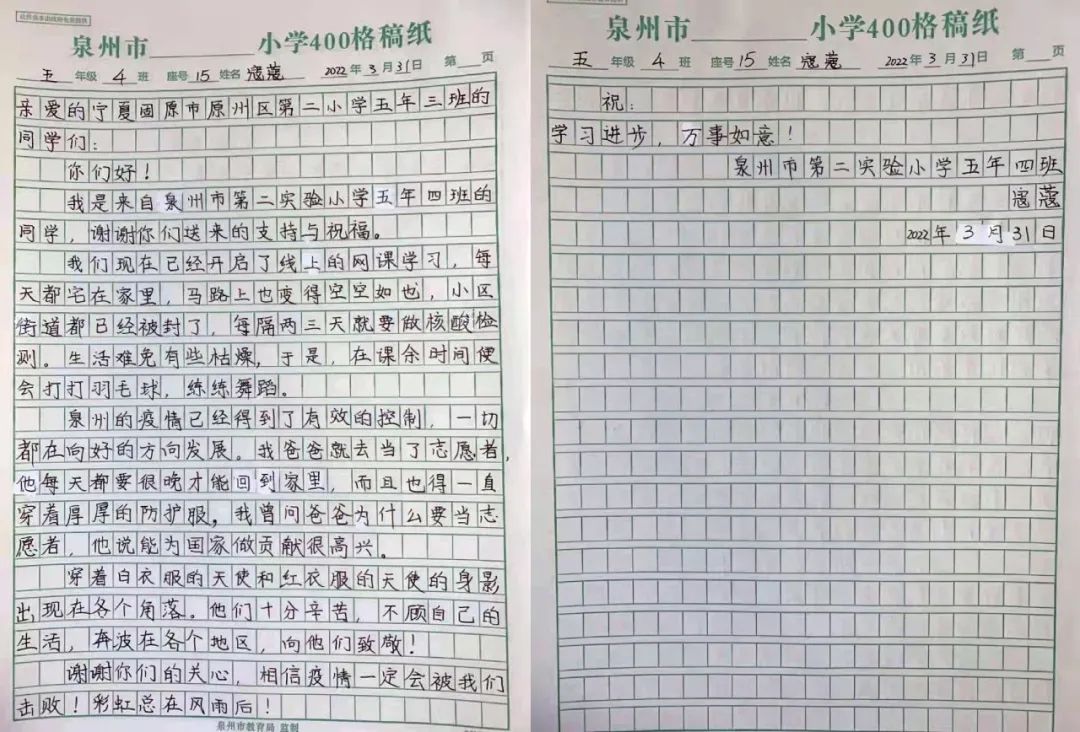 泉州市 小学400格稿纸
五 年级 4 班 座号 15 姓名 寇蔻 2022 年 3 月 31 日 第 页
亲爱的宁夏固原市原州区第二小学五年三班的
同学们：
你们好！
我是来自泉州市第二实验小学五年四班的
同学，谢谢你们送来的支持与祝福。
我们现在已经开启了线上的网课学习，每
天都宅在家里，马路上也变得空空如也，小区
街道都已经被封了，每隔两三天就要做核酸检
测。生活难免有些枯燥，于是，在课余时间便
会打打羽毛球，练练舞蹈。
泉州的疫情已经得到了有效的控制，一切
都在向好的方向发展。我爸爸就去当了志愿者，
他每天都要很晚才能回到家里，而且也得一直
穿着厚厚的防护服，我曾问爸爸为什么要当志
愿者，他说能为国家做贡献很高兴。
穿着白衣服的天使和红衣服的天使的身影
出现在各个角落。他们十分辛苦，不顾自己的
生活，奔波在各个地区，向他们致敬！
谢谢你们的关心，相信疫情一定会被我们
击败！彩虹总在风雨后！
泉州市教育局 监制
泉州市 小学400格稿纸
五 年级 4 班 座号 15 姓名 寇蔻 2022 年 3 月 31 日 第 页
祝：
学习进步，万事如意！
泉州市第二实验小学五年四班
寇蔻
2022年 3 月 31 日